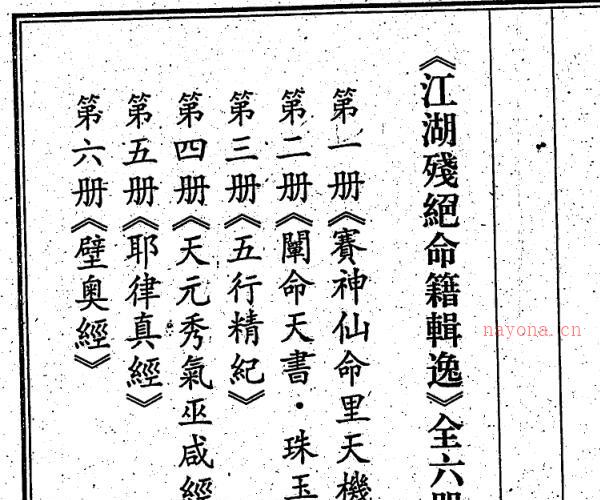 《江湖殘絕命籍輯逸》全六册
第一册《賽神仙命里天機
第二册《闡命天書·珠玉
第三册《五行精紀》
第四册《天元秀氣巫咸經
第五册《耶律真經》
第六册《壁奧經》
nayona.cn